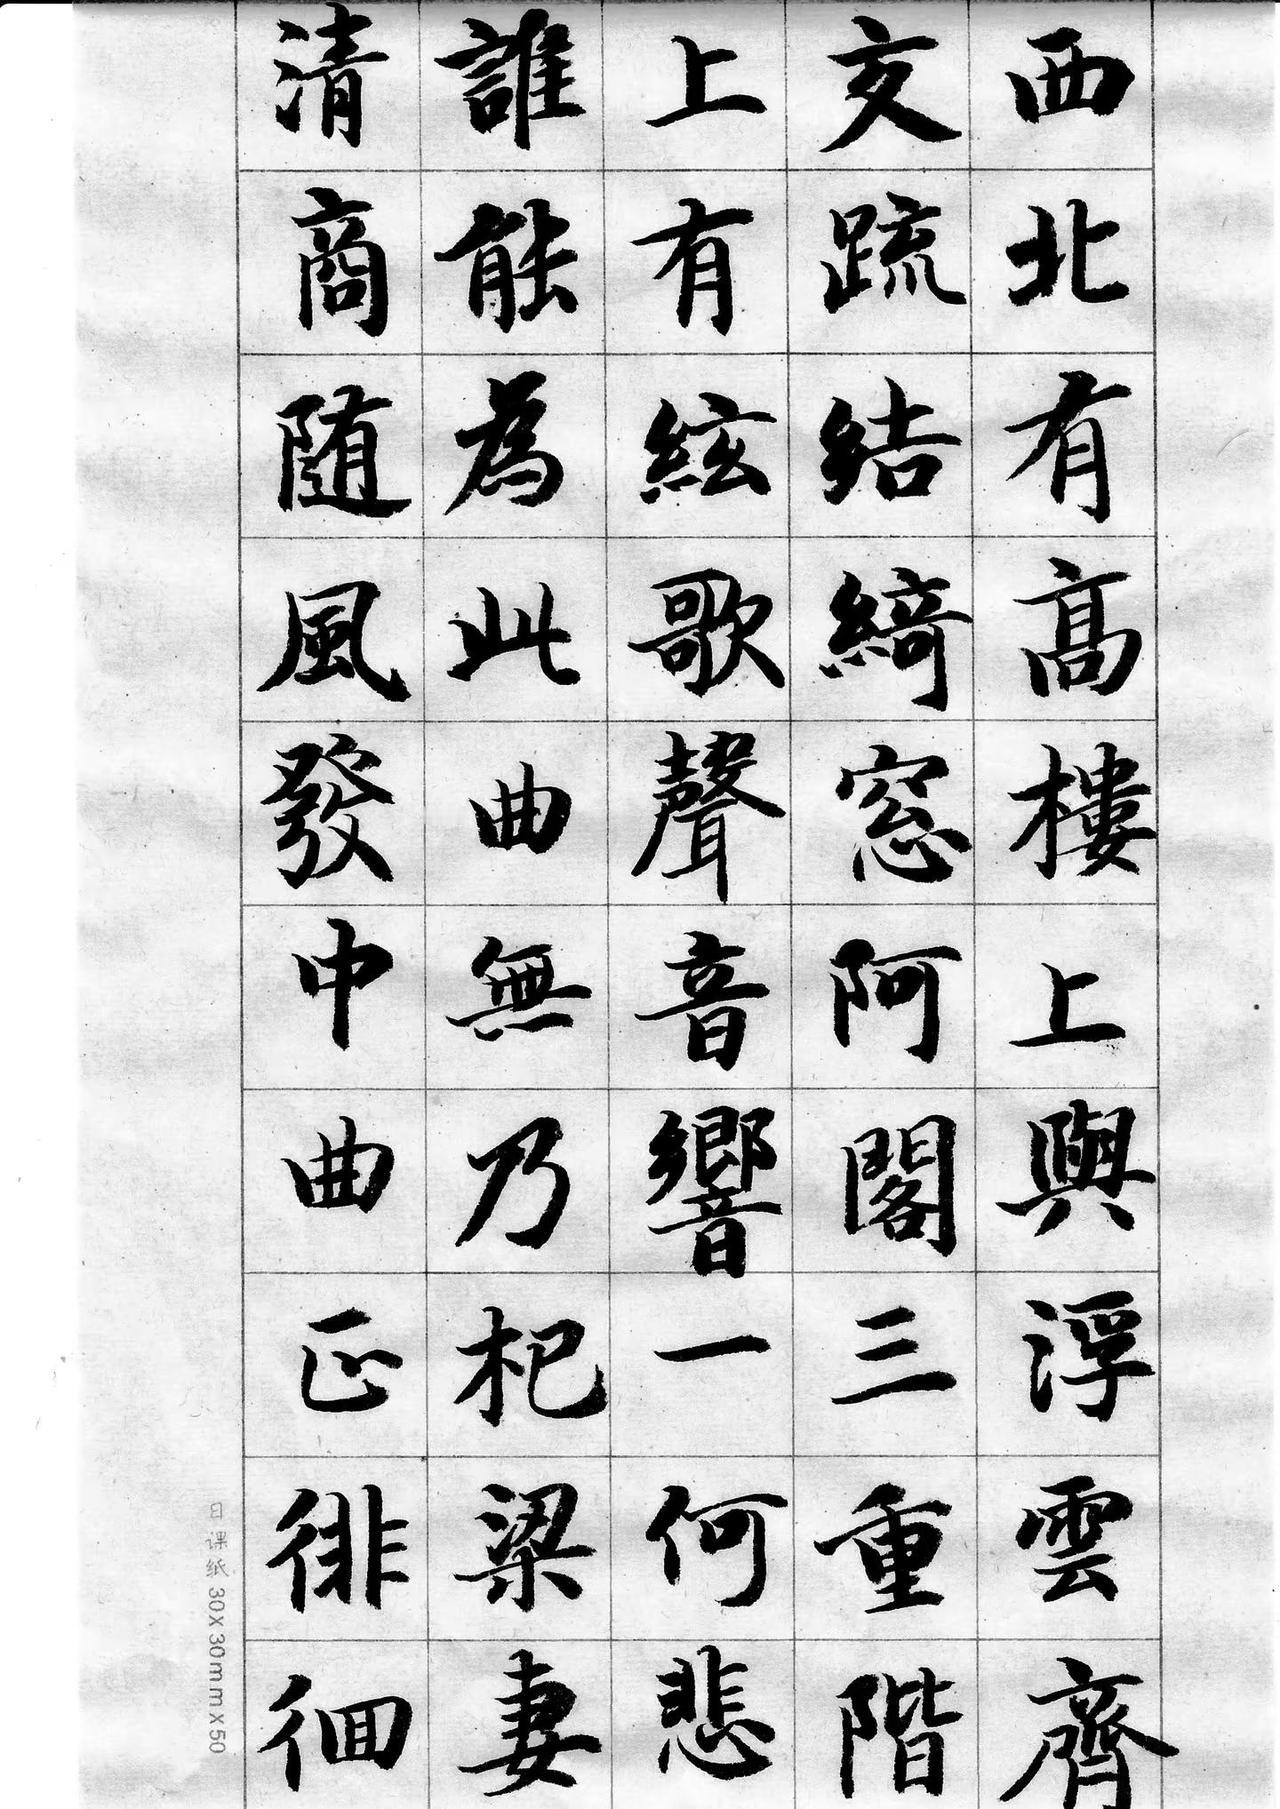 西北有高樓上與浮雲齊
交疏結綺窓阿閣三重階
上有絃歌聲音響一何悲
誰能為此曲無乃杞梁妻
清商随風發中曲正徘徊
日课纸 30X30mmX50